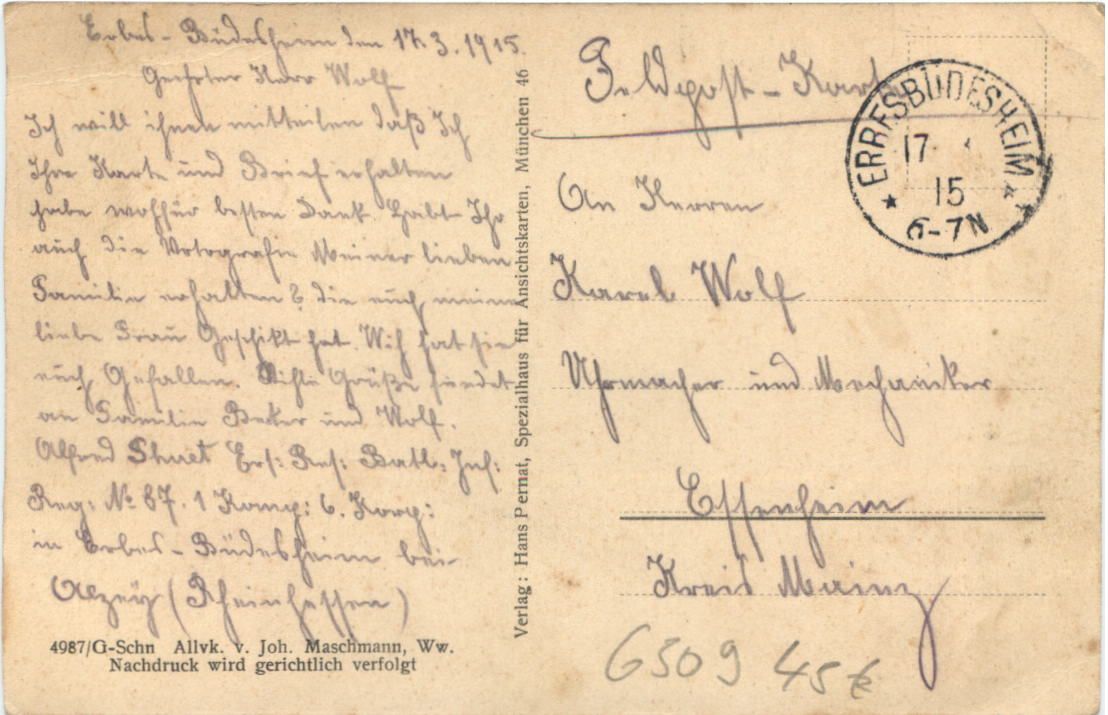 Erbes-Büdesheim den 17.3.1915.
Geehrter Herr Wolf
Ich will ihnen mitteilen daß Ich
Ihre Karte und Brief erhalten
habe wofür besten Dank. Habt Ihr
auch die Votografie Meiner lieben
Familie erhalten? die euch meine
liebe Frau Geschikt hat. Wih hat sie
euch Gefallen. Grüße sendet
an Familie Beker und Wolf.
Alfred Ers: Res: Batl: Inf:
Reg: No 87. 1 Komp: 6. Korp:
in Erbes-Büdesheim bei
Alzey (Rheinhessen)
4987/G-Schn Allvk. v. Joh. Maschmann, Ww.
Nachdruck wird gerichtlich verfolgt
Verlag: Hans Pernat, Spezialhaus für Ansichtskarten, München 46
Feldpost-Karte
ERBESBÜDESHEIM
17
15
6-7N
An Herren
Karl Wolf
Uhrmacher und Mechaniker
Essenheim
Kreis Mainz
6309 45€